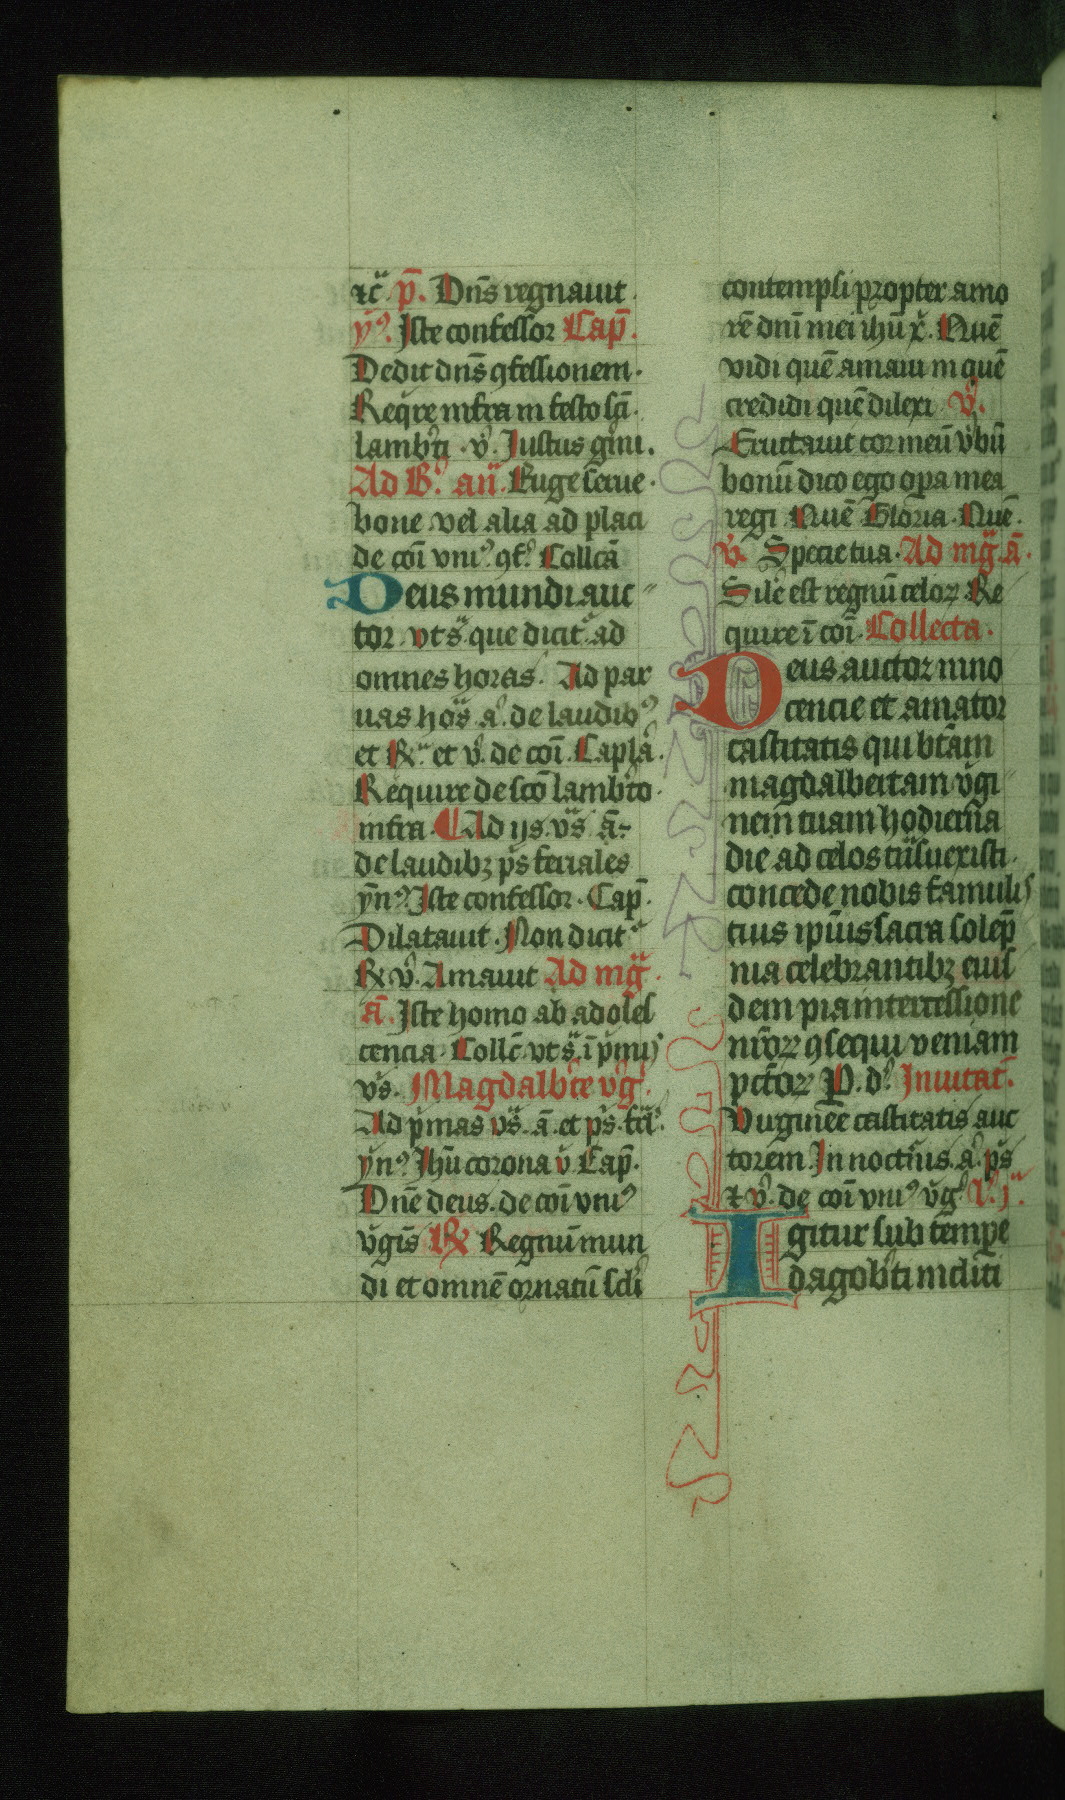 ⁊c̄ p̄. Dn̄s regnauit.
ym̄⁹. Iste confessor Cap̄.
Dedit dn̄s ꝯfessionem.
Req̄re infra in festo sc̄i
lamb̄ti. v̄. Iustus g̃mi.
Ad B̄. an̄. Euge serue.
bone vel alia ad placi
de cōi vni⁹ ꝯf̄. Collc̄ā
Deus mundi auc
tor vt s̄ que dicit᷑ ad
omnes horas. Ad par
uas ho᷑s a̅. de laudib⁹
et ℟. et v̄. de cōi. Capl̄a.
Require de sc̄o lamb̄to
infra. Ad ijs. vs̄ ā.
de laudibꝫ p̄s feriales
ȳn⁹. Iste confessor. Cap̄.
Dilatauit. Non dicit᷑
℟ v̄. Amauit Ad mg̅.
ā. Iste homo ab adoles
cencia. Collc̄ vt s̄ ī p̄mis
vs̄. Magdalb̄te v̄g̅.
Ad p̄mas vs̄. ā. et p̄s. fc̄i.
ȳn⁹. Ih̄u corona v̄. Cap̄.
Dn̄e deus. de cōi vni⁹
v̄gīs ℟ Regnū mun
di et omnē ornatū sc̄li
contempsi propter amo
rē dn̄i mei ih̄u x̄. Quē
vidi quē amaui in quē
credidi quē dilexi v̄.
Eructauit cor meū v̄bū
bonū dico ego oꝑa mea
regi. Quē Gloria. Quē.
v̄. Specie tua. Ad mg̅. ā.
Sil̄e est regnū celoꝝ. Re
quire ī cōi. Collecta.
Deus auctor inno
cencie et amator
castitatis qui bt̄am
magdalbertam v̄gi
nem tuam hodierna
die ad celos t̃nsuexisti.
concede nobis famulis
tuis ip̄ius sacra solep̄
nia celebrantibꝫ eius
dem pia intercessione
nr̄oꝝ ꝯsequi veniam
pctoꝝ P. d̄. Inuitat̄.
Virginee castitatis auc
torem. In noctur̄is. ā. p̄s
⁊ v̄. de cōi vni⁹ v̄g̅. l̄. j.
Igitur sub temꝑe
dagob̄ti incliti